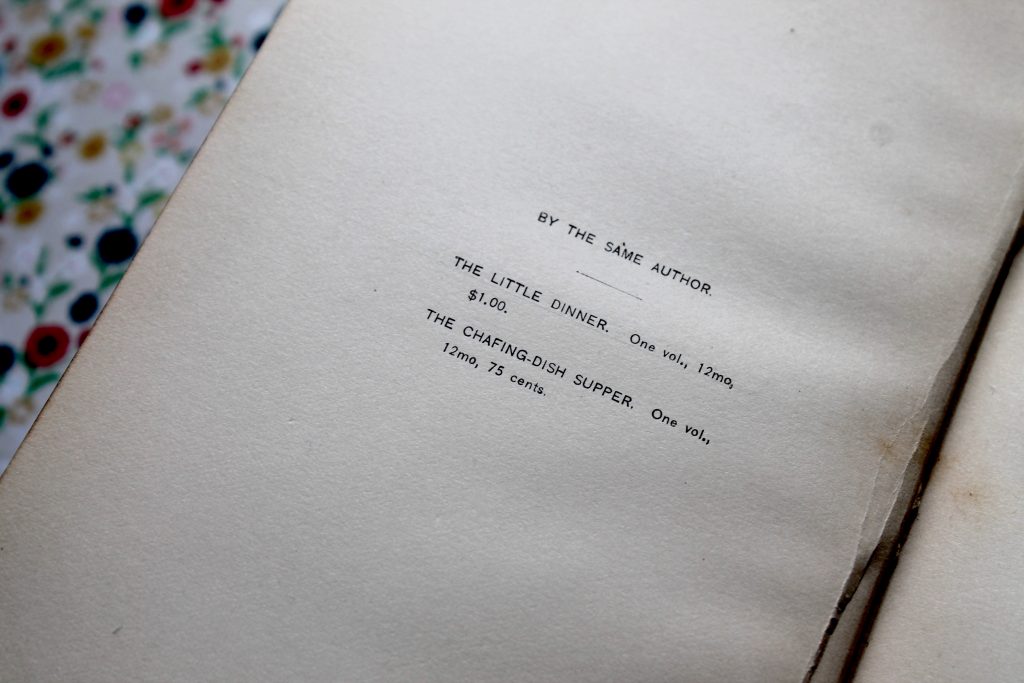 BY THE SAME AUTHOR.
THE LITTLE DINNER. One vol., 12mo,
$1.00.
THE CHAFING-DISH SUPPER. One vol.,
12mo, 75 cents.